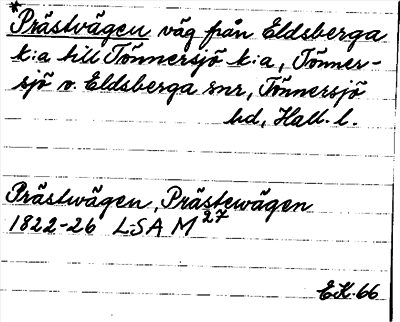 *Prästvägen väg från Eldsberga
k:a till Tönnersjö k:a, Tönner-
sjö o. Eldsberga snr, Tönnersjö
hd, Hall. l.
Prästvägen, Prästewägen
1822-26 LSA M27
EK.66